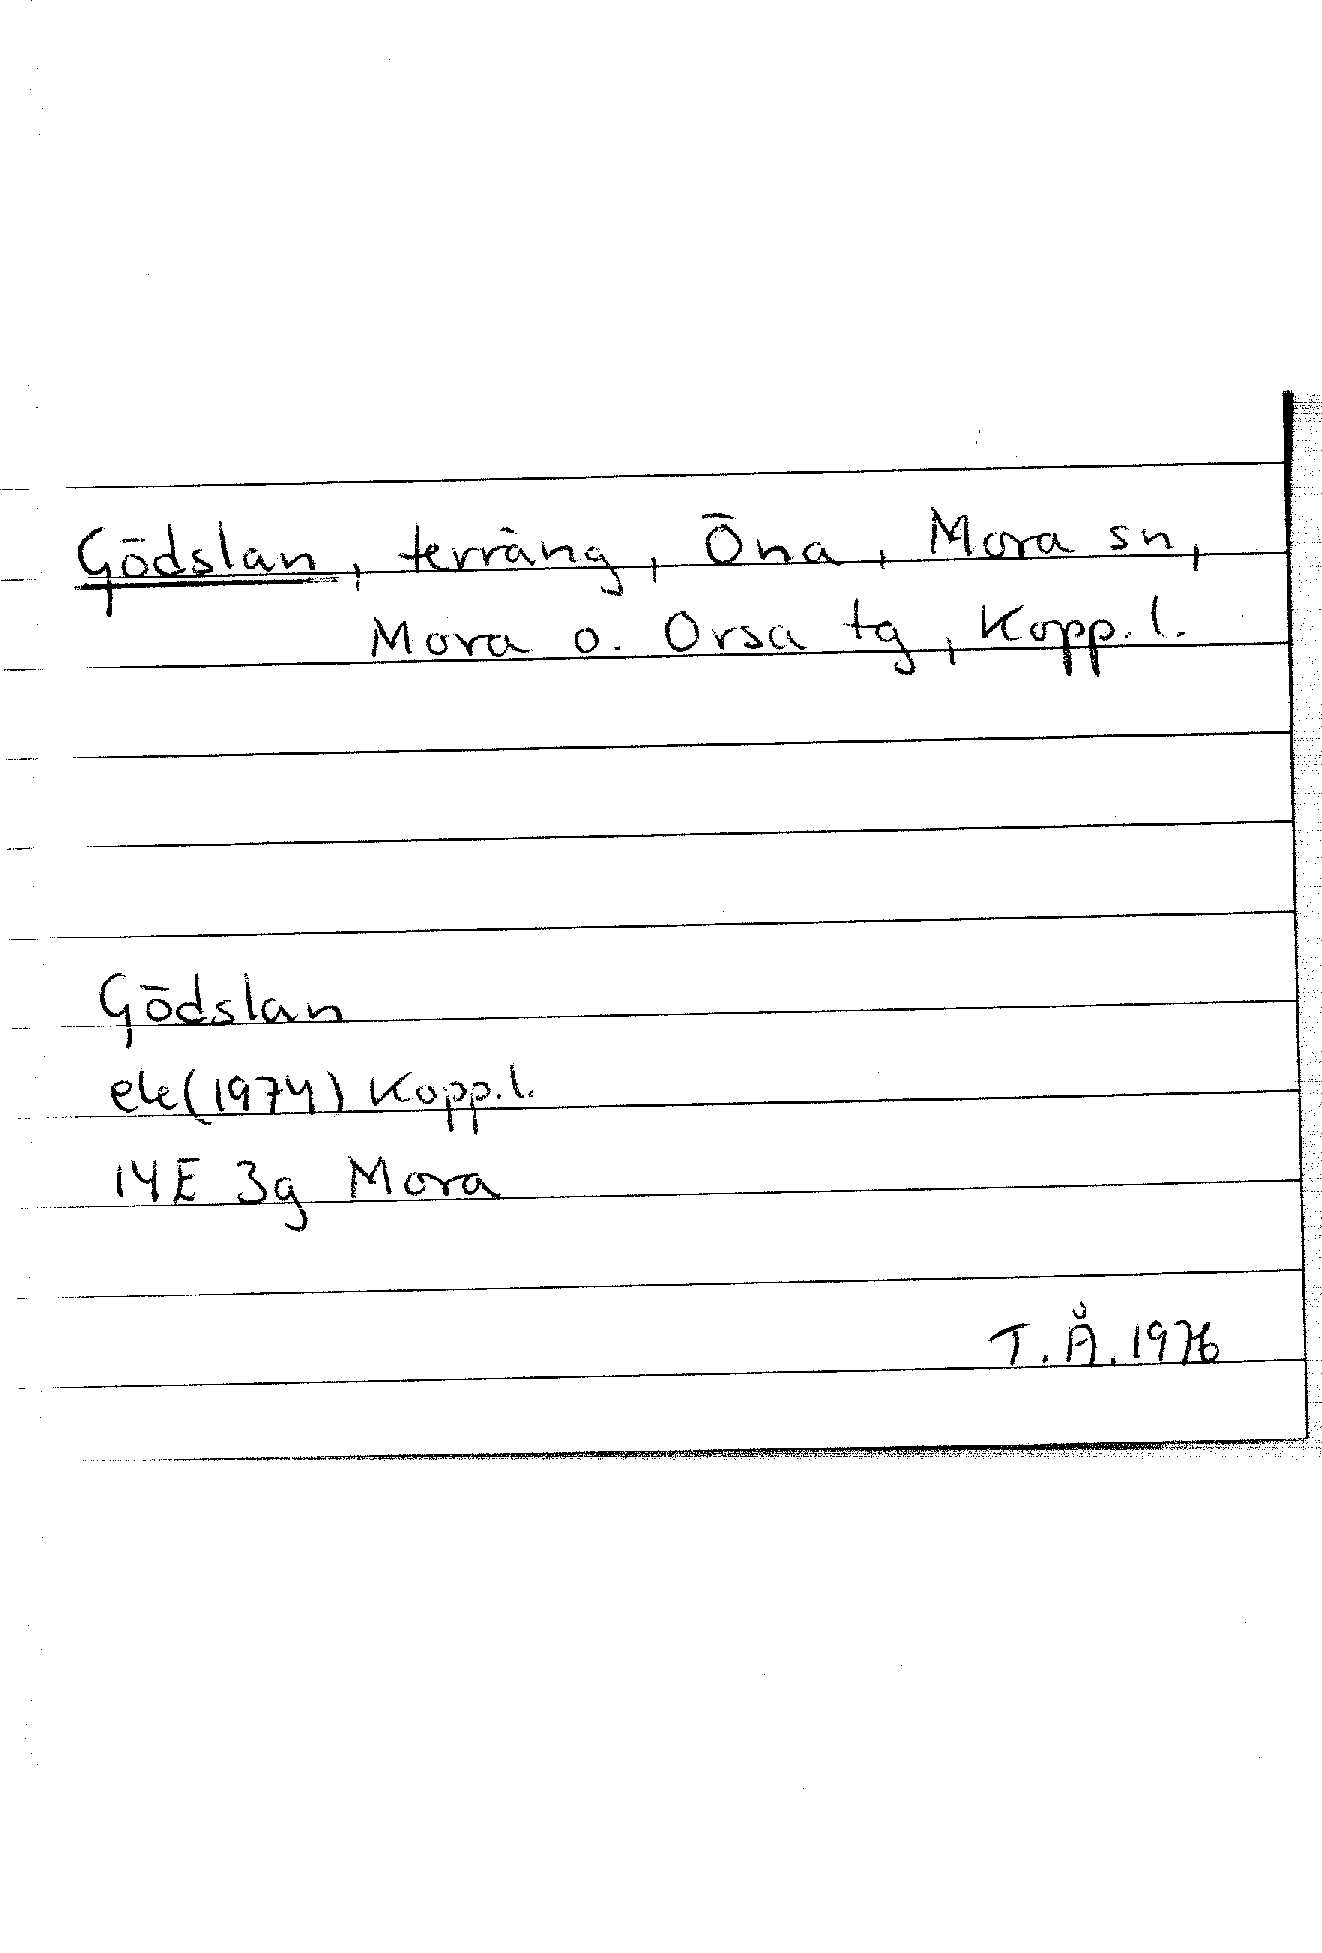 Gödslan, terräng, Öna, Mora sn,
Mora o. Orsa tg, Kopp. l.
Gödslan
ek (1974) Kopp. l.
14E 3g Mora
T. Å. 1976